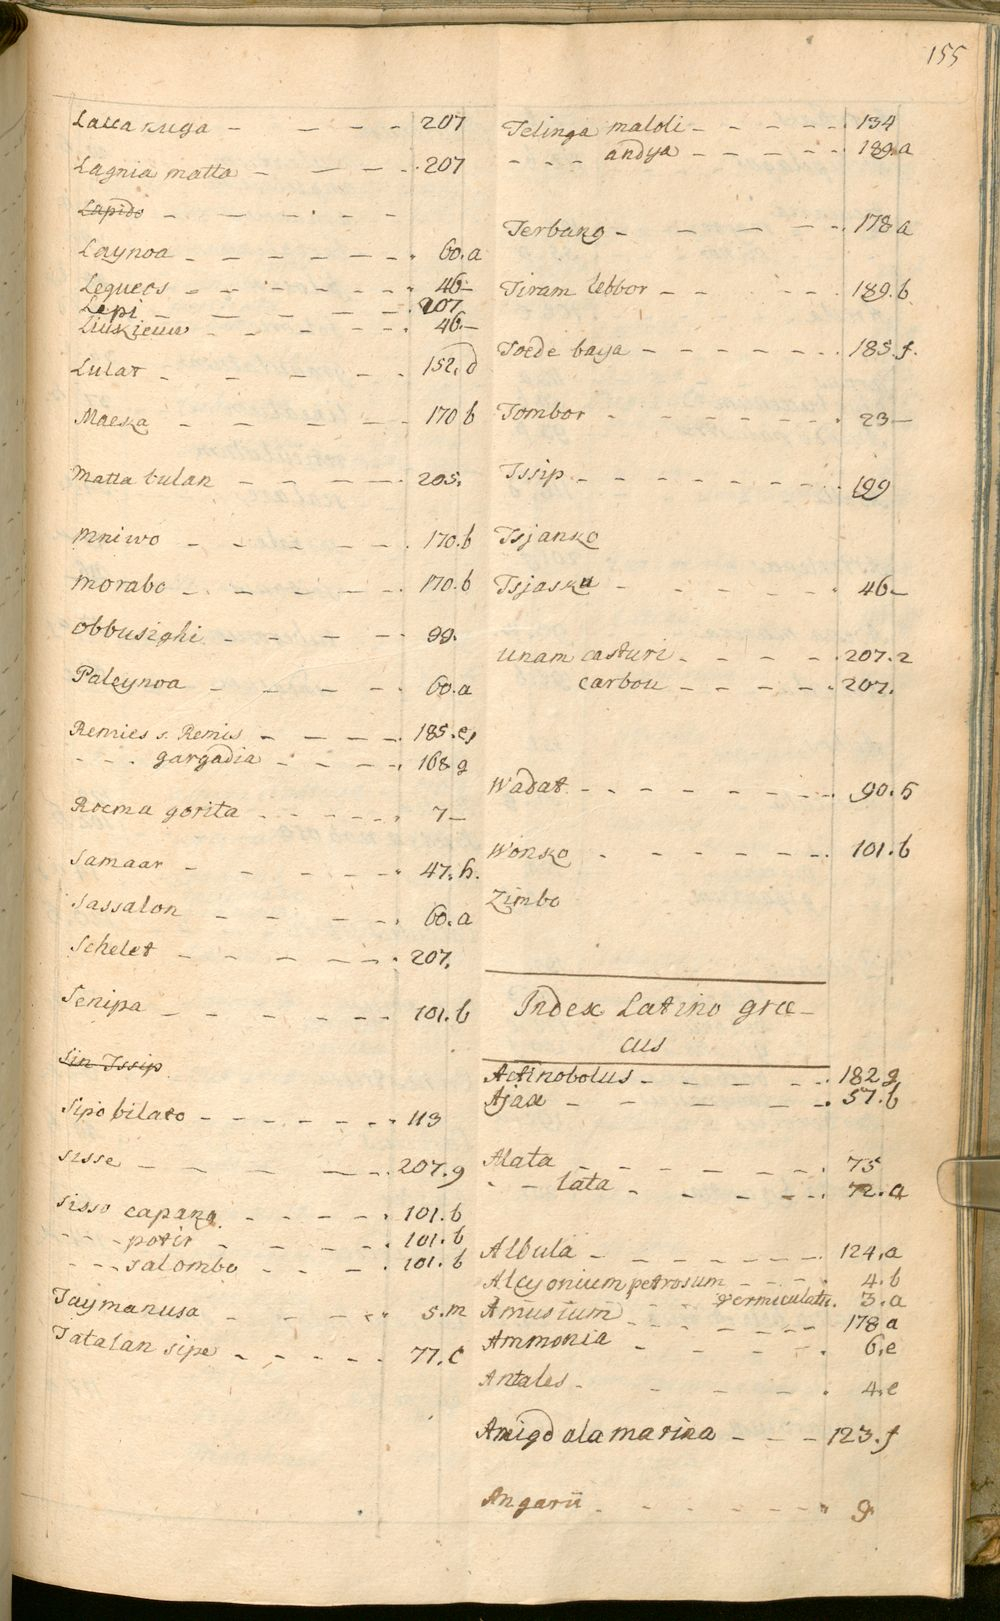 155
Lacca ruga - - - - 207
Lagnia matta - - - - 207
Lapido - - - - - -
Laynoa - - - - - - 60.a
Lequeos - - - - - - 46-
Lepi - - - - - - 207
Liukieuw - - - - - 46.-
Lulat - - - - - - 152.d
Maeska - - - - - - 170 b
Matta bulan - - - - 205.
Mniwo - - - - - - 170.b
Morabo - - - - - - 170.b
Obbusighi - - - - - 99.
Paleynoa - - - - - 60.a
Remies s. Remis - - - - 185.e,
- - - gargadia - - - - 168 g
Roema gorita - - - - - 7-
Samaar - - - - - - 47.h.
Sassalon - - - - - 60.a
Schelet - - - - - - 207.
Senipa - - - - - - 101.b
Sin Issip
Sipo bilato - - - - - - 113
Sisse - - - - - - 207.g
Sisso capang - - - - - 101.b
- - - potir - - - - - 101.b
- - - salombo - - - - 101.b
Taymanusa - - - - 5.m
Tatalan sipe - - - - - 77.c
Telinga maloli - - - - - 134
- - - andya - - - - - 189.a
Terbang - - - - - - 178 a
Tiram lebbor - - - - 189.b
Toede baya - - - - - - 185.f.
Tombor - - - - - - 23-
Tssip - - - - - - - 199
Tsjanko
Tsjasku - - - - - - 46-
Unam casturi - - - - 207.2
carbou - - - - - 207.
Wadat - - - - - - - 90.h
Wonsko - - - - - - 101.b
Zimbo
Index Latino græ-
cus
Actinobolus - - - - - 182 g
Ajax - - - - - - 57.b
Alata - - - - - - 75
- - lata - - - - - 72.a
Albula - - - - - - 124.a
Alcyonium petrosum - - - - 4.b
- - vermiculatu. 3.a
Amusium - - - - - - 178 a
Ammonia - - - - - 6,e
Antales - - - - - 4.e
Amigdala marina - - - 123.f
Angarii - - - - - - 9